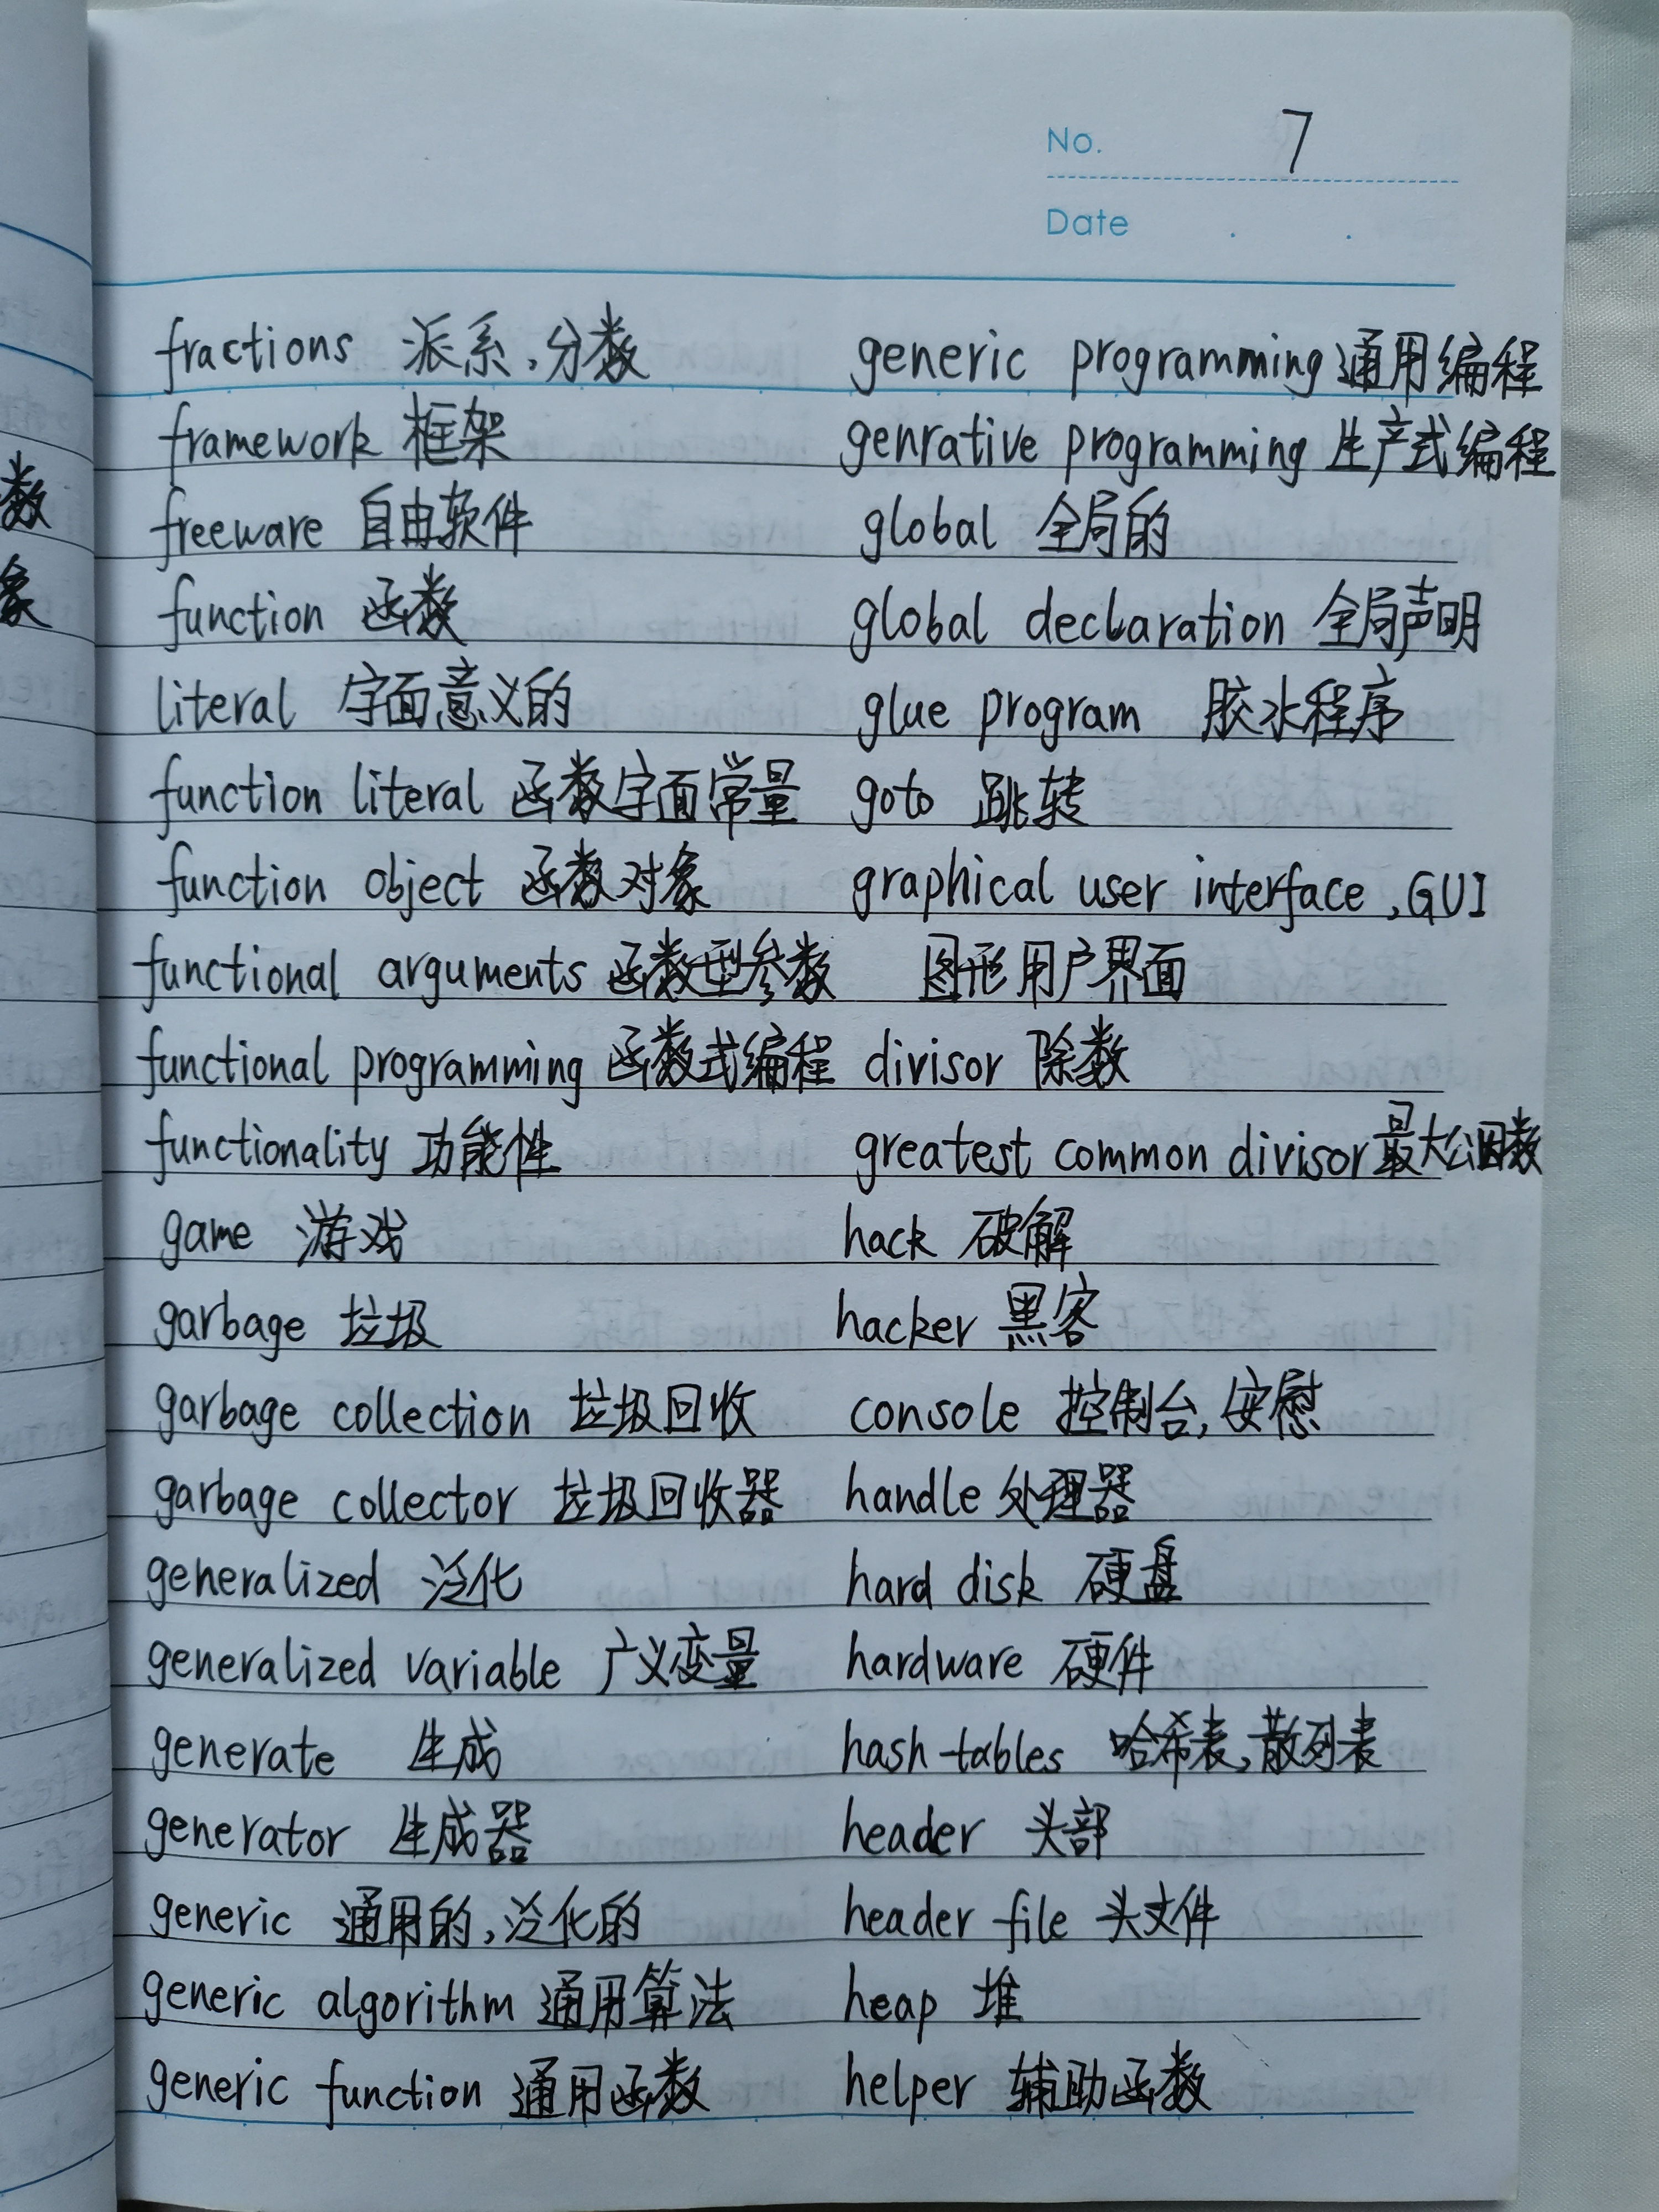 No. 7
Date . .
fractions 派系,分数
framework 框架
freeware 自由软件
function 函数
literal 字面意义的
function literal 函数字面常量
function object 函数对象
functional arguments 函数型参数
functional programming 函数式编程
functionality 功能性
game 游戏
garbage 垃圾
garbage collection 垃圾回收
garbage collector 垃圾回收器
generalized 泛化
generalized variable 广义变量
generate 生成
generator 生成器
generic 通用的,泛化的
generic algorithm 通用算法
generic function 通用函数
generic programming 通用编程
genrative programming 生产式编程
global 全局的
global declaration 全局声明
glue program 胶水程序
goto 跳转
graphical user interface,GUI
图形用户界面
divisor 除数
greatest common divisor 最大公因数
hack 破解
hacker 黑客
console 控制台,安慰
handle 处理器
hard disk 硬盘
hardware 硬件
hash-tables 哈希表,散列表
header 头部
header file 头文件
heap 堆
helper 辅助函数
数
象